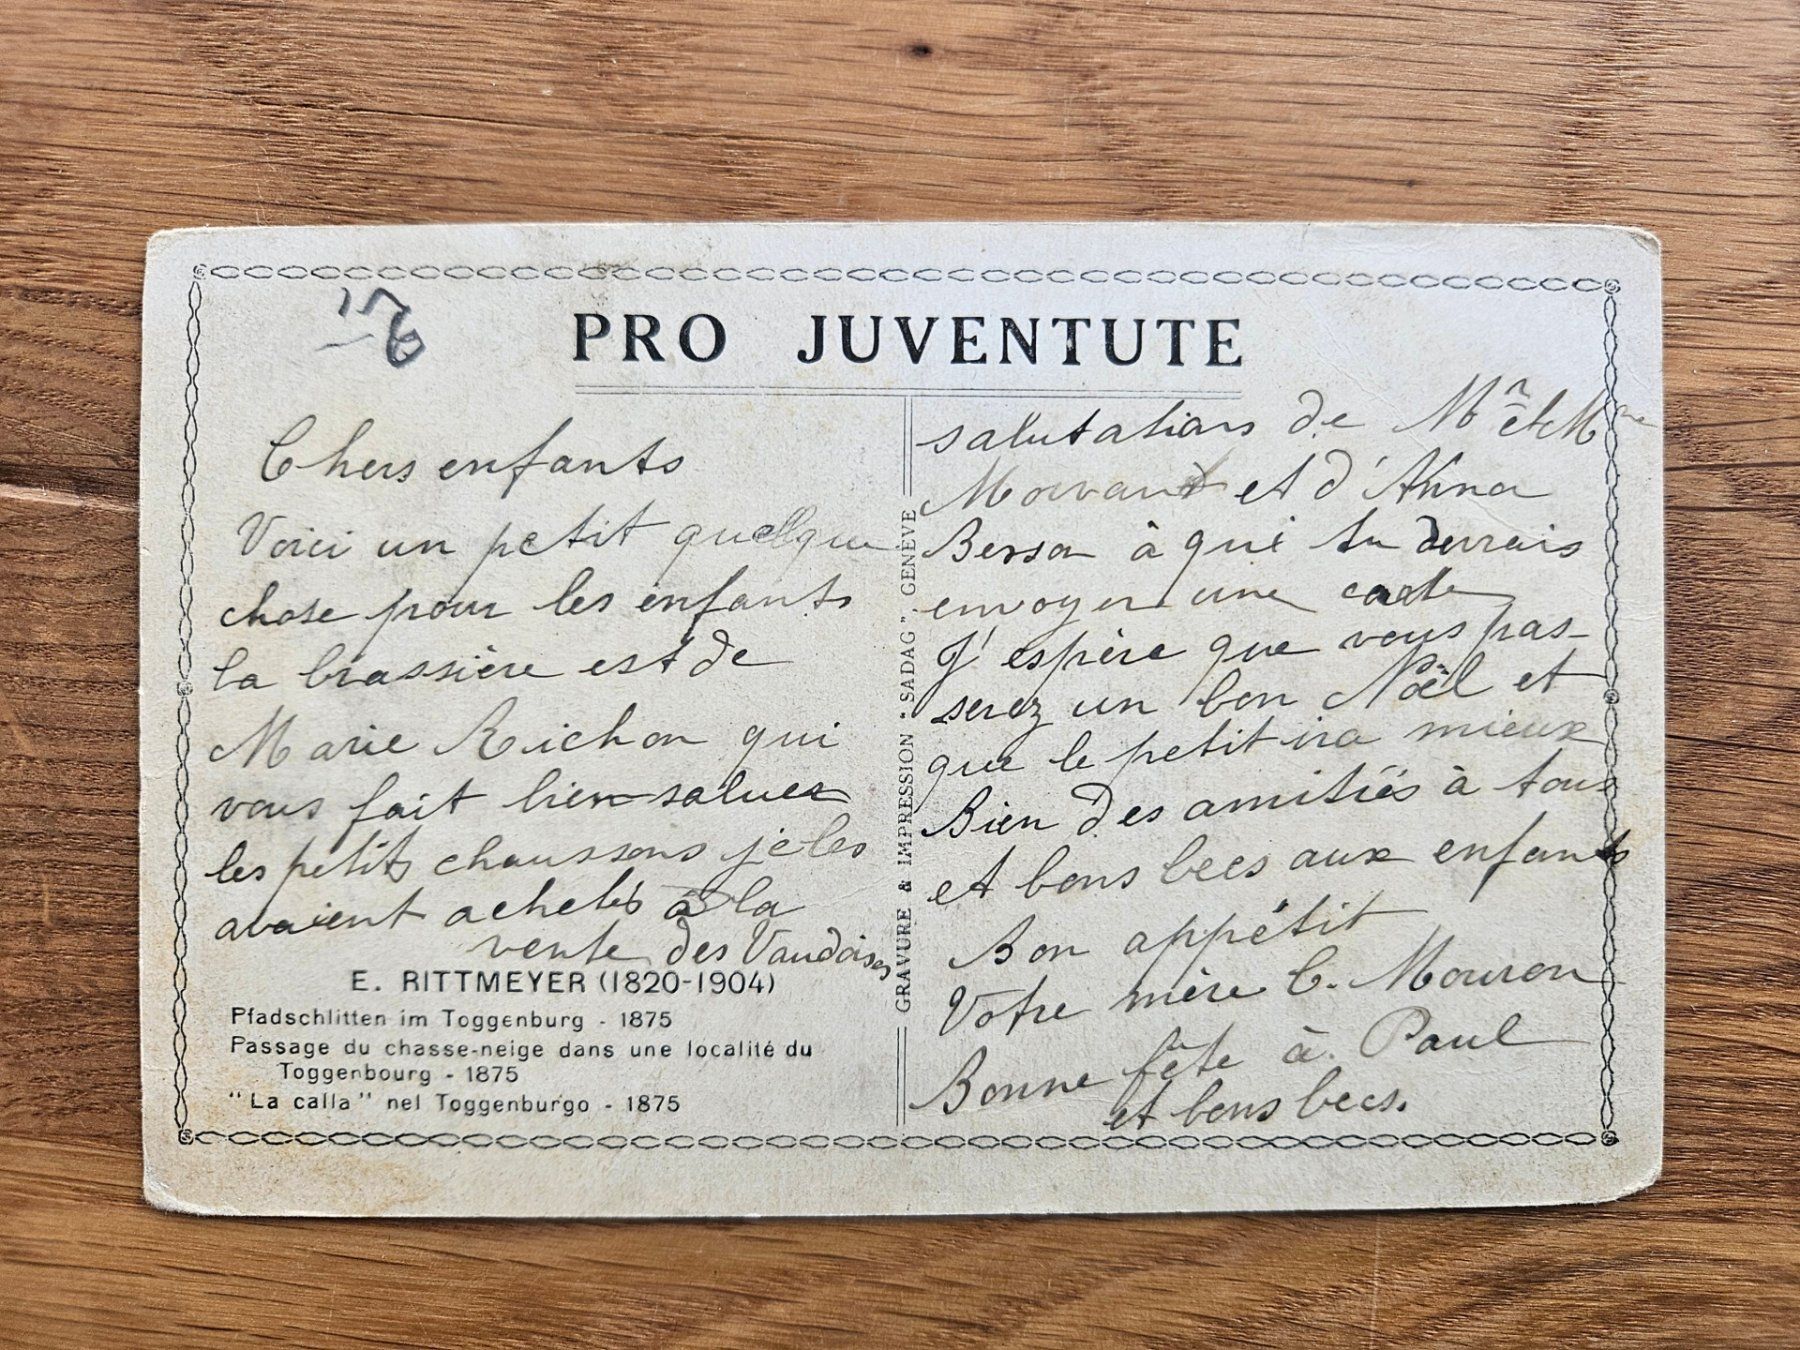 PRO JUVENTUTE
Chers enfants
Voici un petit quelque
chose pour les enfants
la brassière est de
Marie Richon qui
vous fait bien saluer
les petits chaussons je les
avaient achetés à la
vente des Vaudoises
E. RITTMEYER (1820-1904)
Pfadschlitten im Toggenburg - 1875
Passage du chasse-neige dans une localité du
Toggenbourg - 1875
"La calla" nel Toggenburgo - 1875
GRAVURE & IMPRESSION "SADAG" GENÈVE
salutations de Mr et Mme
et d'Anna
Berson à qui tu devrais
envoyer une carte
J'espère que vous pas-
serez un bon Noël et
que le petit ira mieux
Bien des amitiés à tous
et bons becs aux enfants
Bon appétit
Votre mère C. Mouron
Bonne fête à Paul
et bons becs.